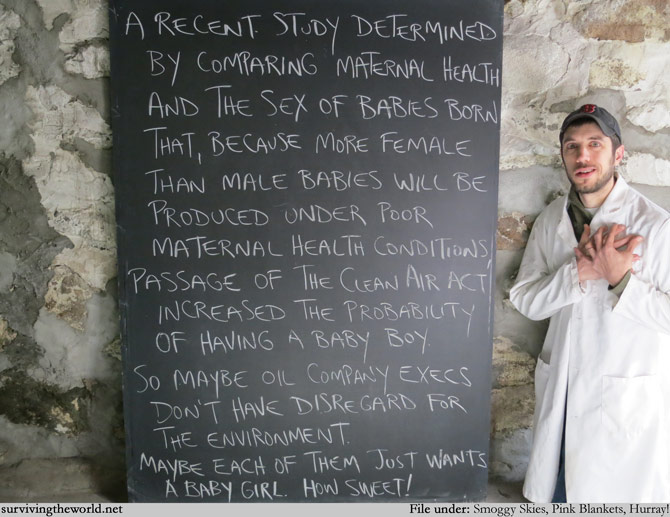 A RECENT STUDY DETERMINED
BY COMPARING MATERNAL HEALTH
AND THE SEX OF BABIES BORN
THAT, BECAUSE MORE FEMALE
THAN MALE BABIES WILL BE
PRODUCED UNDER POOR
MATERNAL HEALTH CONDITIONS,
PASSAGE OF THE CLEAN AIR ACT
INCREASED THE PROBABILITY
OF HAVING A BABY BOY.
SO MAYBE OIL COMPANY EXECS
DON'T HAVE DISREGARD FOR
THE ENVIRONMENT.
MAYBE EACH OF THEM JUST WANTS
A BABY GIRL. HOW SWEET!
survivingtheworld.net
File under: Smoggy Skies, Pink Blankets, Hurray!